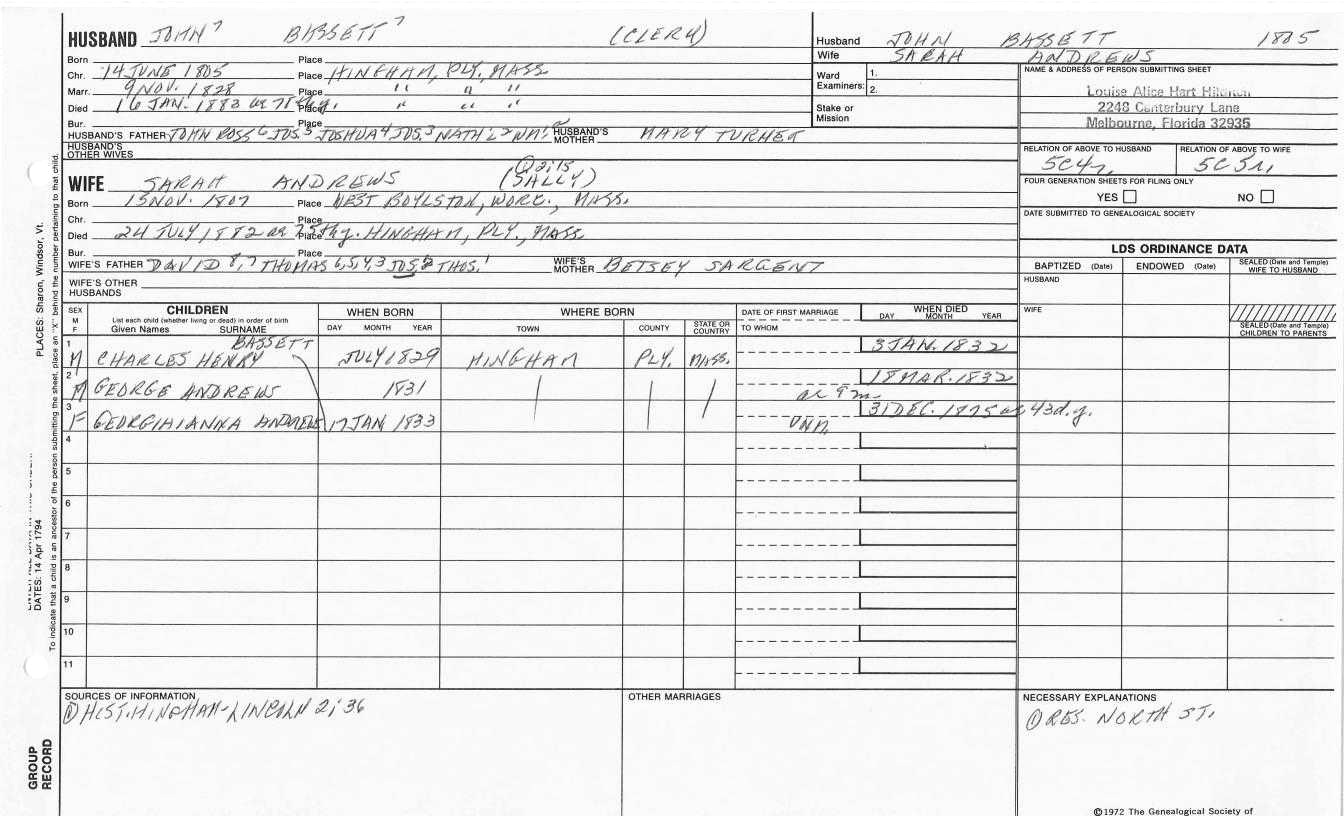 HUSBAND JOHN 7 BASSETT 7 (CLERK)
Born 14 JUNE 1805 Place HINGHAM, PLY, MASS
Chr. Place
Marr. 9 NOV. 1828 Place " " "
Died 16 JAN. 1883 ae 78th y. Place " " "
Bur. Place
HUSBAND'S FATHER JOHN ROSS 6 JOS. 5 JOSHUA 4 JOS. 3 NATH'L 2 WM. HUSBAND'S MOTHER MARY TURNER
HUSBAND'S OTHER WIVES
WIFE SARAH ANDREWS (SALLY) ① 2;15
Born 15 NOV. 1807 Place WEST BOYLSTON, WORC., MASS.
Chr. Place
Died 24 JULY, 1882 ae 75th y. Place HINGHAM, PLY., MASS
Bur. Place
WIFE'S FATHER DAVID 8,7 THOMAS 6,5,4,3 JOS. 2 THOS. 1 WIFE'S MOTHER BETSEY SARGENT
WIFE'S OTHER HUSBANDS
Husband JOHN BASSETT 1805
Wife SARAH ANDREWS
Ward Examiners: 1.
2.
Stake or Mission
NAME & ADDRESS OF PERSON SUBMITTING SHEET
Louise Alice Hart
2248 Canterbury Lane
Melbourne, Florida 32935
RELATION OF ABOVE TO HUSBAND RELATION OF ABOVE TO WIFE
5C4r. 5C3r.
FOUR GENERATION SHEETS FOR FILING ONLY
YES NO
DATE SUBMITTED TO GENEALOGICAL SOCIETY
LDS ORDINANCE DATA
BAPTIZED (Date) ENDOWED (Date) SEALED (Date and Temple) WIFE TO HUSBAND
HUSBAND
WIFE
SEALED (Date and Temple) CHILDREN TO PARENTS
SEX M F CHILDREN WHEN BORN WHERE BORN DATE OF FIRST MARRIAGE WHEN DIED
List each child (whether living or dead) in order of birth
Given Names SURNAME DAY MONTH YEAR TOWN COUNTY STATE OR COUNTRY TO WHOM DAY MONTH YEAR
BASSETT
1 M CHARLES HENRY JULY 1829 HINGHAM PLY. MASS. 3 JAN. 1832
2 M GEORGE ANDREWS 1831 ae 9 m. 18 MAR. 1832
3 F GEORGIAIANNA ANDREWS 17 JAN 1833 UNM. 31 DEC. 1875 ae 43d. y.
4
5
6
7
8
9
10
11
SOURCES OF INFORMATION
① HIST. HINGHAM-LINCOLN 2; 36
OTHER MARRIAGES
NECESSARY EXPLANATIONS
① RES. NORTH ST.
©1972 The Genealogical Society of
PLACES: Sharon, Windsor, Vt.
DATES: 14 Apr 1794
To indicate that a child is an ancestor of the person submitting the sheet, place an "X" behind the number pertaining to that child.
GROUP RECORD